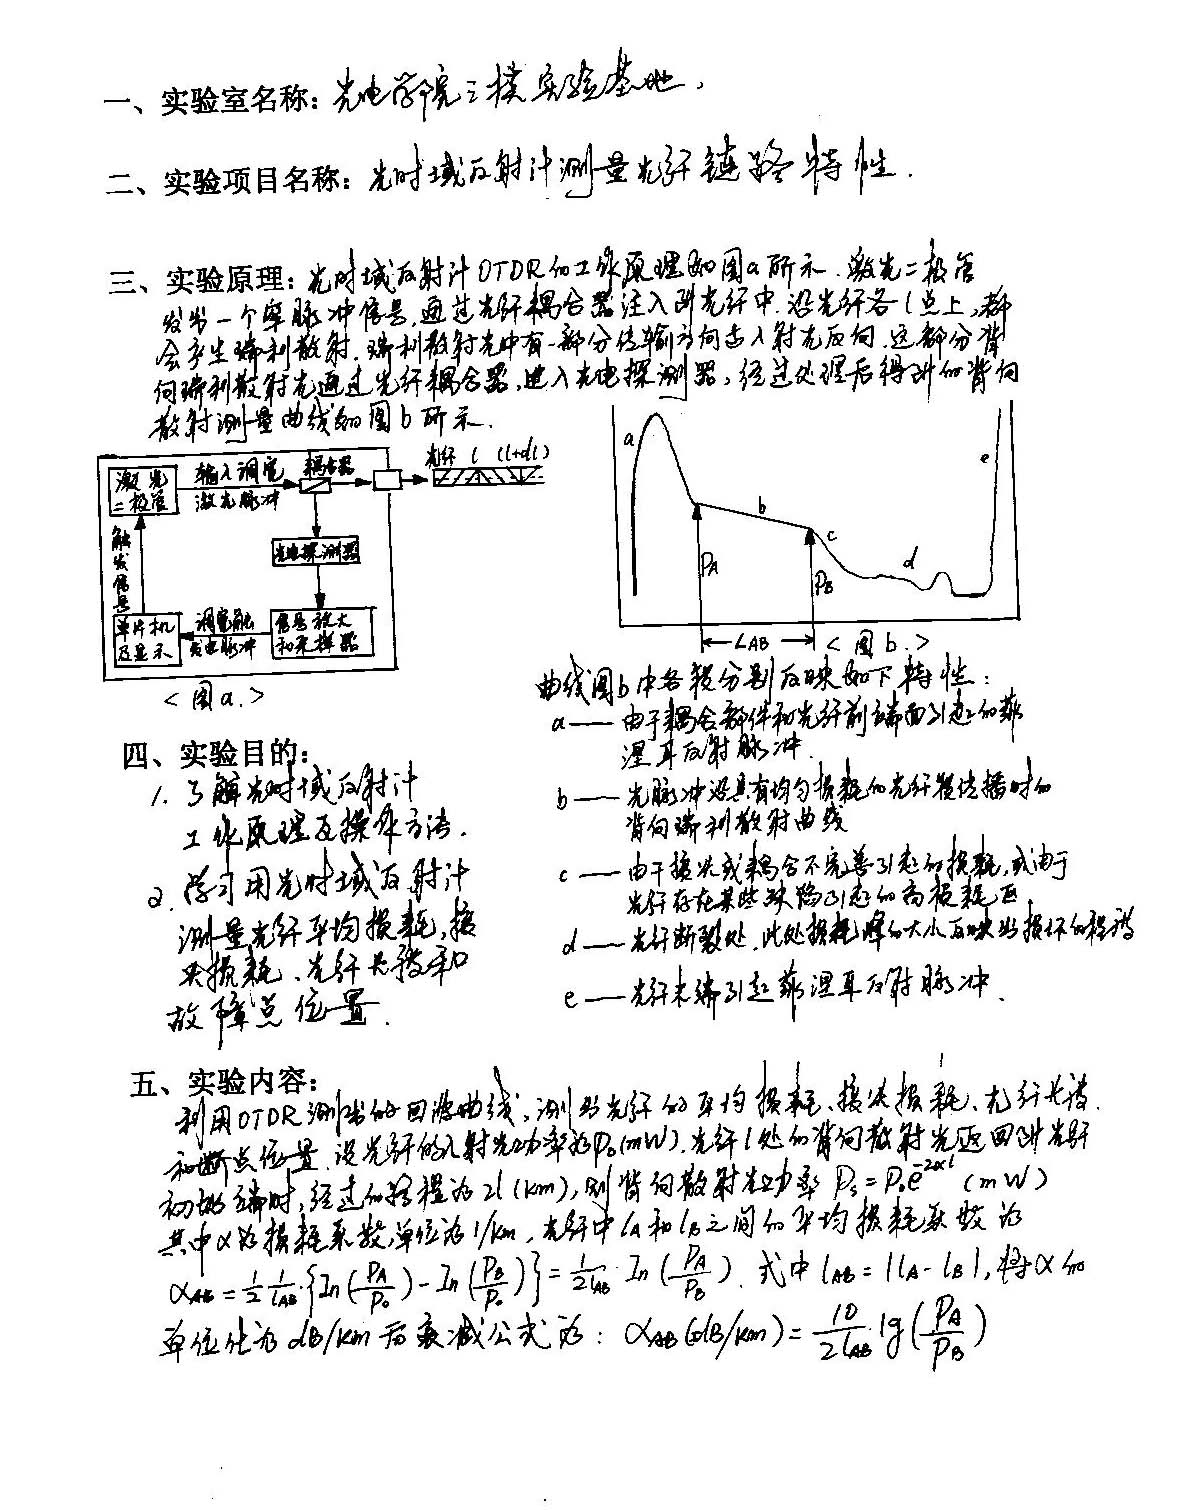 一、实验室名称：光电学院三楼实验基地．
二、实验项目名称：光时域反射计测量光纤链路特性．
三、实验原理：光时域反射计OTDR的工作原理如图a所示．激光二极管
发出一个窄脉冲信号，通过光纤耦合器注入到光纤中．沿光纤各l点上，都
会产生瑞利散射．瑞利散射光中有一部分传输方向与入射光反向．这部分背
向瑞利散射光通过光纤耦合器，进入光电探测器，经过处理后得到的背向
散射测量曲线如图b所示．
激光
二极管
输入调宽
激光脉冲
耦合器
光纤 l (l+dl)
触发信号
光电探测器
单片机
及显示
调宽触
发电脉冲
信号放大
和采样器
<图a.>
a
b
c
d
e
PA
PB
LAB
<图b.>
曲线图b中各段分别反映如下特性：
a——由于耦合部件和光纤前端面引起的菲
涅耳反射脉冲．
b——光脉冲沿具有均匀损耗的光纤段传播时的
背向瑞利散射曲线
c——由于接头或耦合不完善引起的损耗，或由于
光纤存在某些缺陷引起的高损耗区
d——光纤断裂处，此处损耗峰的大小反映出损坏的程度
e——光纤末端引起菲涅耳反射脉冲．
四、实验目的：
1. 了解光时域反射计
工作原理及操作方法．
2. 学习用光时域反射计
测量光纤平均损耗，接
头损耗、光纤长度和
故障点位置．
五、实验内容：
利用OTDR测出的回波曲线，测出光纤的平均损耗、接头损耗、光纤长度
和断点位置．设光纤的入射光功率为P₀(mW)．光纤l处的背向散射光返回到光纤
初始端时，经过的路程为2l(km)，则背向散射光功率 Ps=P₀e^{-2αl} (mW)
其中α为损耗系数，单位为1/km，光纤中lA和lB之间的平均损耗系数为
αAB=\frac{1}{2}\frac{1}{lAB}·{In(\frac{PA}{P₀})-In(\frac{PB}{P₀})}=\frac{1}{2lAB}·In(\frac{PA}{PB})．式中lAB=|lA-lB|，将α的
单位化为dB/km后衰减公式为：αAB(dB/km)=\frac{10}{2lAB}·lg(\frac{PA}{PB})